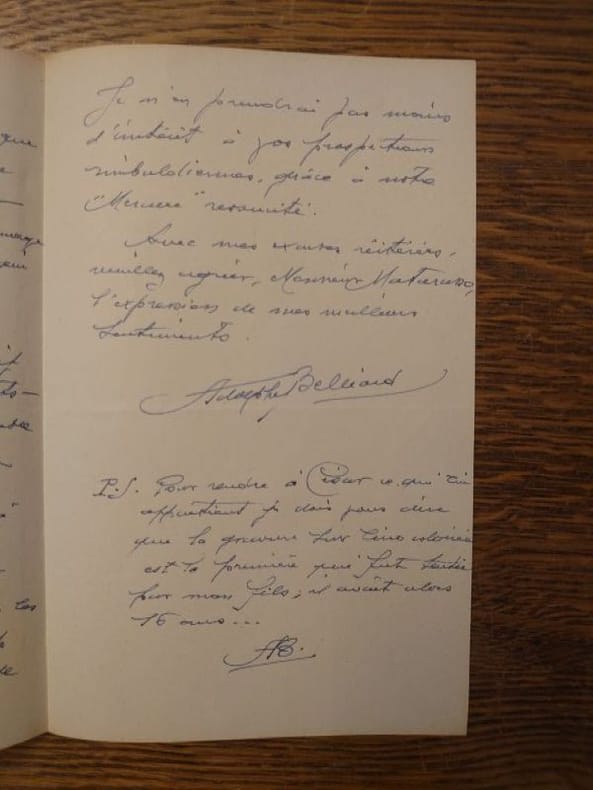 Je n'en prendrai pas moins
d'intérêt à vos prospections
rimbaldiennes, grâce à notre
"Mercure" ressuscité.
Avec mes excuses réitérées,
veuillez agréer, Monsieur Matarasso,
l'expression de mes meilleurs
sentiments.
Adolphe Belliard
P.S. Pour rendre à César ce qui lui
appartient je dois vous dire
que la gravure sur lino coloriée
est la première qui fut
par mon fils; il avait alors
16 ans...
AB.
que
les